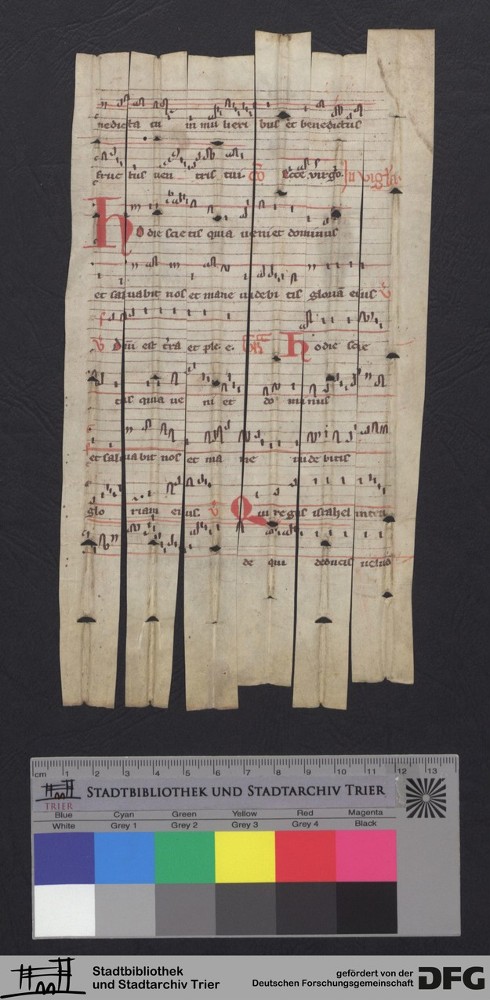 nedicta tu in mulieribus et benedictus
fructus ven tris tui. Co Ecce virgo. In vigla
Hodie scietis quia veniet dominus
et salvabit nos et mane videbitis gloriā eius
Dni est t̄ra et ple. e. Hodie scie
tis quia ve ni et do minus
et salvabit nos et ma ne vide bitis
glo riam eius. Qui regis israhel inten
de qui deducis velud
cm 1 2 3 4 5 6 7 8 9 10 11 12 13
TRIER
Stadtbibliothek und Stadtarchiv Trier
Blue Cyan Green Yellow Red Magenta
White Grey 1 Grey 2 Grey 3 Grey 4 Black
Stadtbibliothek
und Stadtarchiv Trier
gefördert von der
Deutschen Forschungsgemeinschaft
DFG